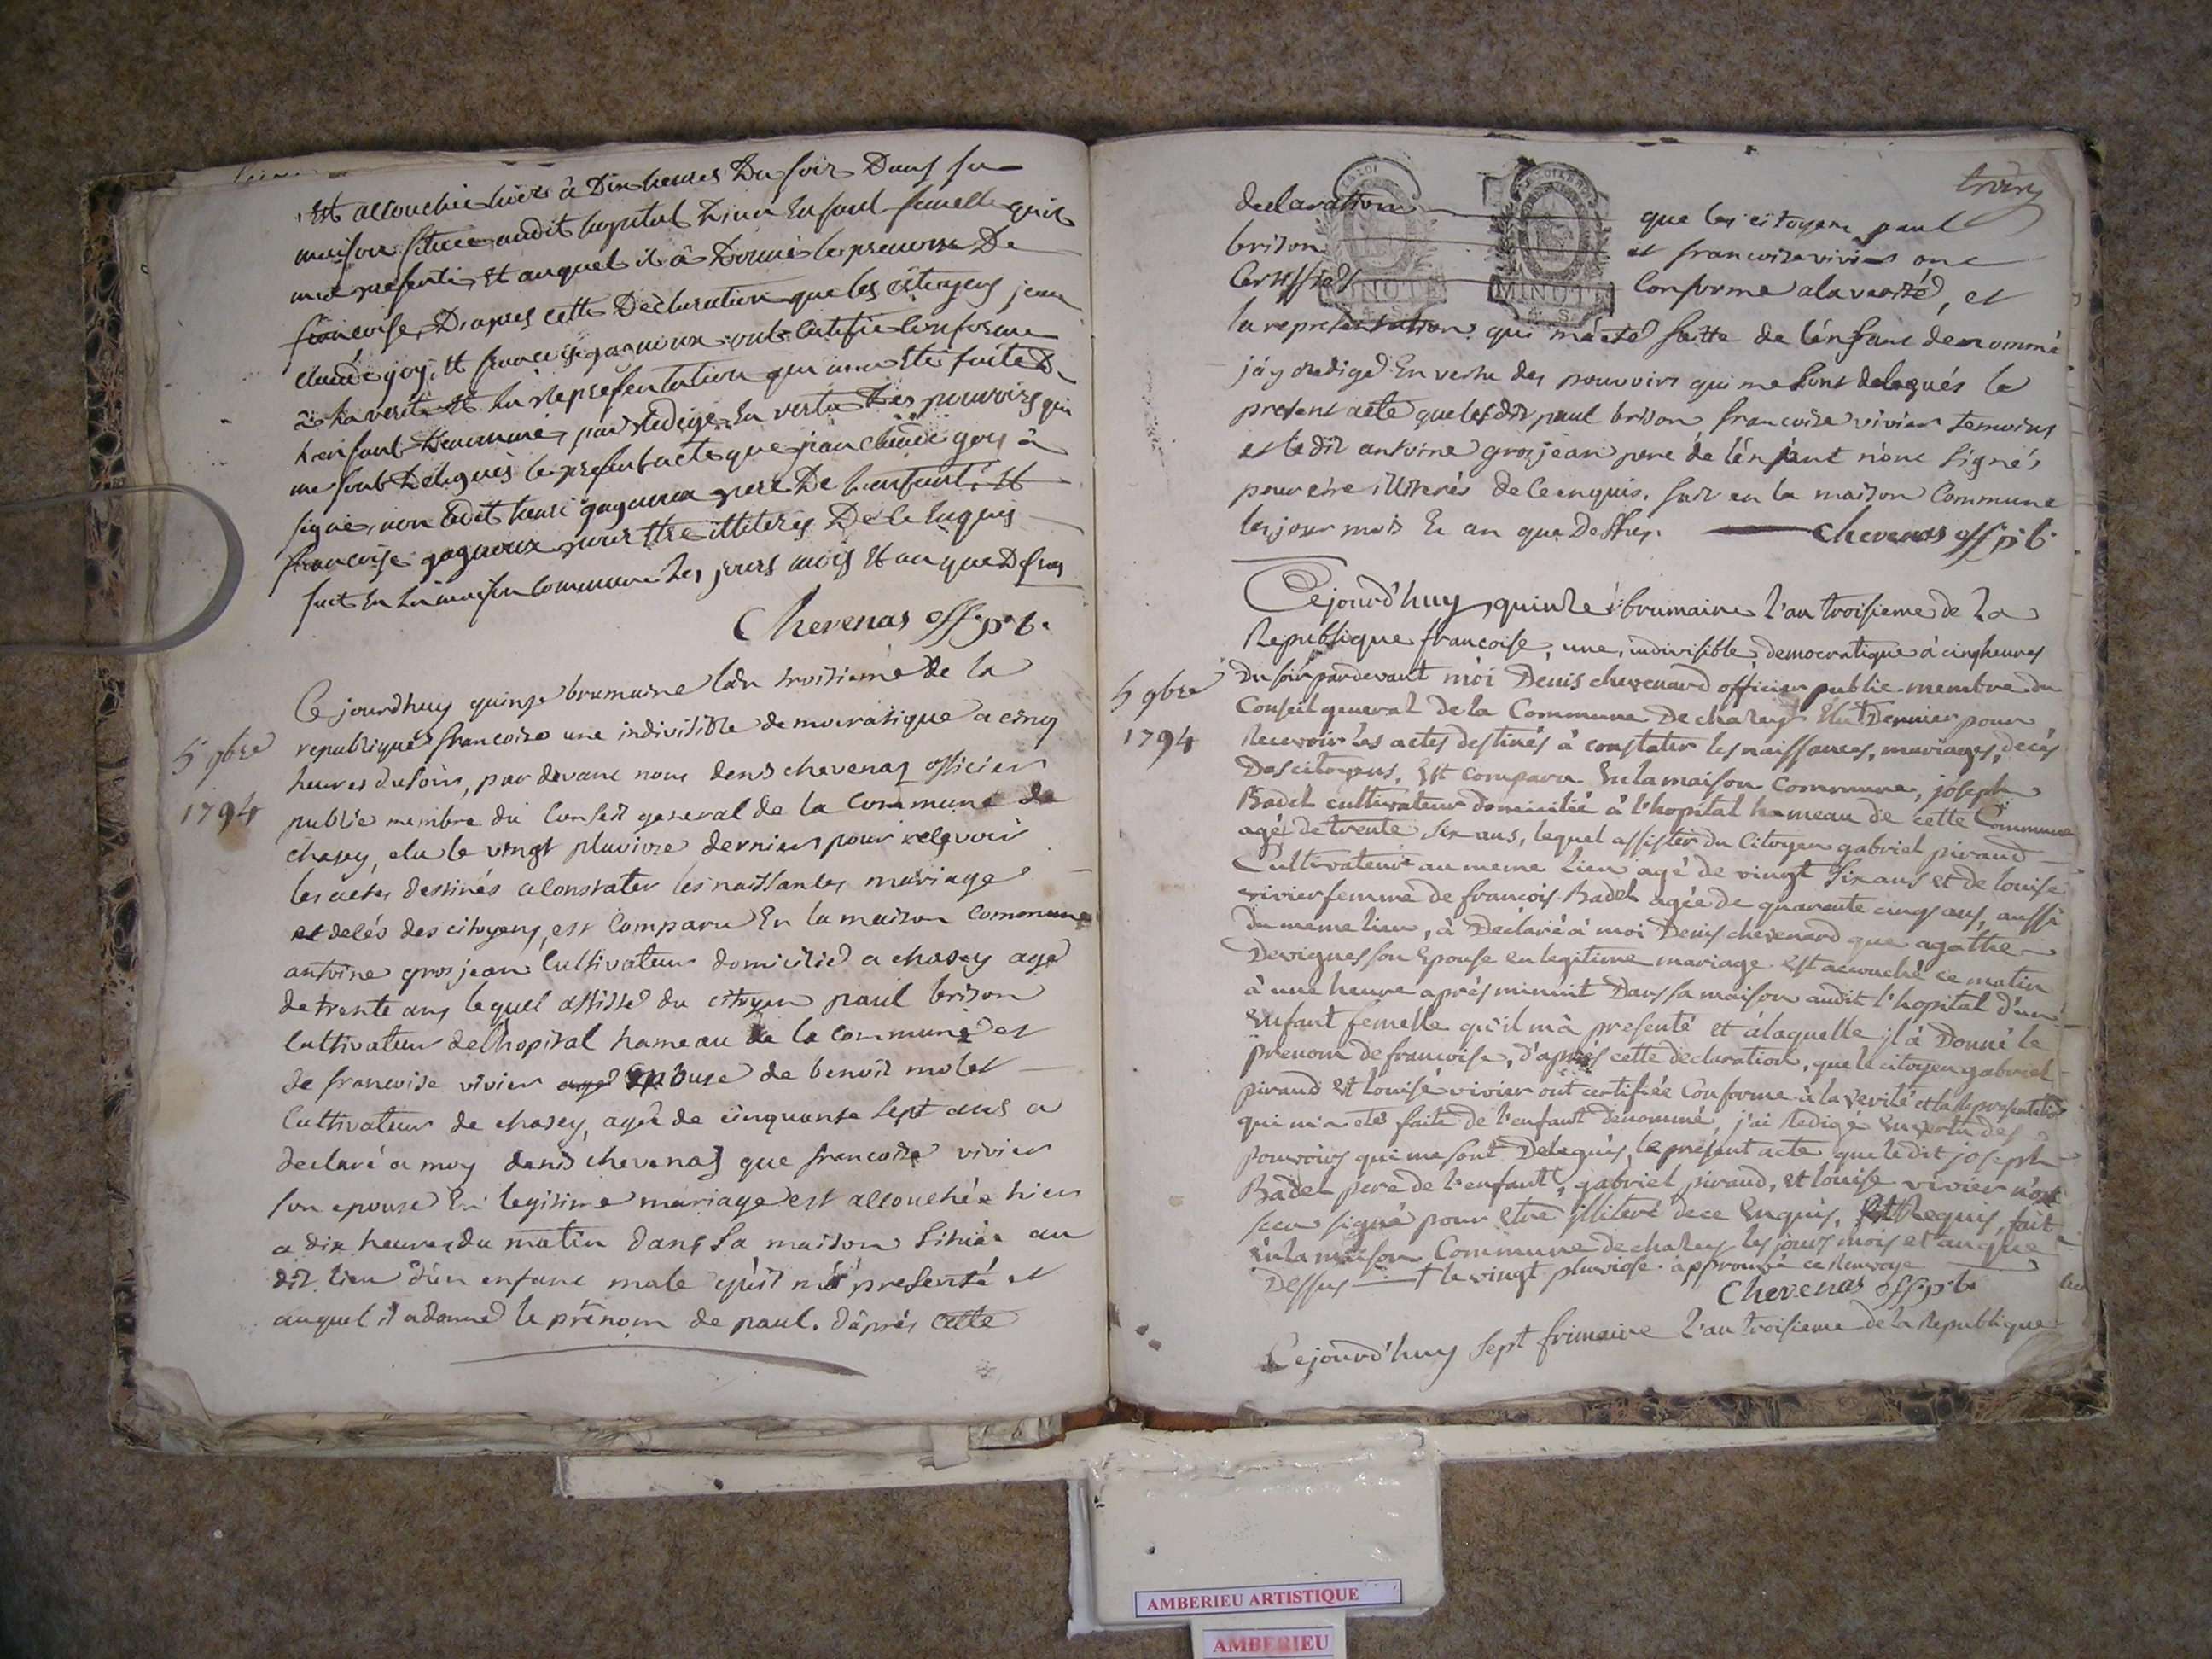 est accouchée hier à Dix heures Du soir Dans sa
maison situee audit hopital D'un Enfant femelle quil
m'a presenté, et auquel il a Donné le prenom De
francoise, D'apres cette Declaration que les citoyens jean
claude goy, et francoise gagneux ont certifié conforme
à la verité et la representation qui m'a été faite De
l'enfant Denommé, j'ai Redigé En vertu Des pouvoirs qui
me sont Délégués le present acte que jean claude goy à
signé, non ledit henri gagneux pere De L'enfant, et
francoise gagneux pour etre illiterés De ce Enquis
fait En la maison commune Les jours mois et an que Dessus
Chevenas off. p. b.
Ce jourdhuy quinze brumaire lan troisieme de la
5 9bre
republique francoise une indivisible democratique a cinq
1794
heures du soir, par devant nous denis chevenas officier
public membre du Conseil general de la Commune de
chasey, elu le vingt pluviose dernier pour recevoir
les actes destinés a Constater les naissances mariage
et decés des citoyens, est Comparu En la maison commune
antoine grosjean Cultivateur domicilié a chasey agé
de trente ans lequel assisté du citoyen paul brison
Cultivateur de l'hopital hameau de la commune et
de francoise vivier agé epouse de benoit molet
Cultivateur de chasey, agée de cinquante sept ans a
declaré a moy denis chevenas que francoise vivier
son epouse En legitime mariage est accouchée hier
a dix heures du matin dans sa maison située au
dit lieu d'un enfant male qu'il m'a presenté et
auquel il a donné le prénom de paul. d'aprés cette
troix
declaration que les citoyens paul
brison et francoise vivier ont
Certiffiés Conforme a la verité, et
la representation qui m'a eté faitte de l'enfant denommé
j'ay redigé En vertu des pouvoirs qui me sont delegués le
present acte que lesdit paul brison francoise vivier temoins
et le dit antoine grosjean pere de l'enfant n'ont signés
pour etre illiterés de ce enquis. fait en la maison Commune
les jour mois Et an que Dessus. Chevenas off p. b.
Cejourd'huy quinze brumaire l'an troisieme de la
Republique francoise, une, indivisible, democratique à cinq heures
5 9bre
Du soir pardevant moi Denis chevenard officier public membre du
1794
Conseil general de la Commune De chasey Elu † Dernier pour
Recevoir les actes destinés à constater les naissances, mariages, decés
Des citoyens, Est comparu En la maison Commune, joseph
Badel cultivateur domicilié à l'hopital hameau de cette Commune
agé de trente six ans, lequel assisté du Citoyen gabriel piraud
Cultivateur au meme lieu agé de vingt six ans et de louise
vivier femme de francois Badel agée de quarente cinq ans, aussi
du meme lieu, à Déclaré à moi Denis chevenard que agathe
Devignes son Epouse en legitime mariage est accouché ce matin
à une heure aprés minuit Dans sa maison audit l'hopital d'un
Enfant femelle qu'il m'à presenté et à laquelle il à Donné le
prenom de francoise, d'aprés cette declaration, que le citoyen gabriel
piraud Et louise vivier ont certifiée Conforme à la verité et la Representation
qui m'a eté faite de l'enfant denommé, j'ai Redigé En vertu des
pouvoirs qui me sont Delegués, le présent acte que ledit joseph
Badel pere de l'enfant, gabriel piraud, Et louise vivier n'ont
sceu signé pour Etre illiteré de ce Enquis, Et Requis, fait
En la maison Commune de chasey les jours mois et an que
Dessus † le vingt pluviose. approuvé ce Renvoye
Chevenas off. p. b.
Cejourd'huy sept frimaire l'an troisieme de la Republique
MINUTE
MINUTE
AMBERIEU ARTISTIQUE
AMBERIEU